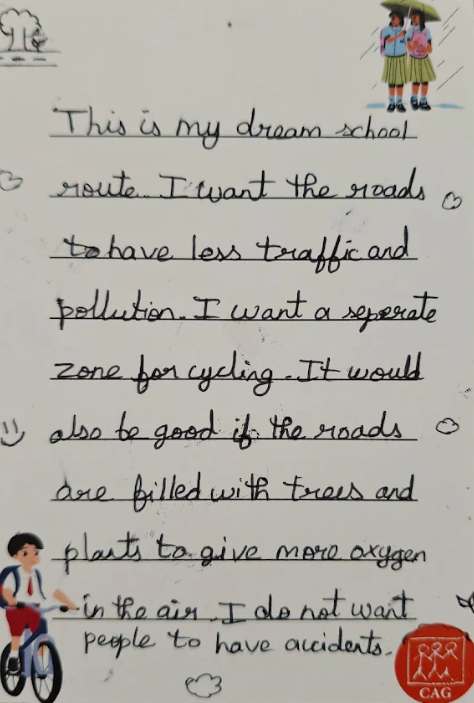 This is my dream school
route. I want the roads
to have less traffic and
pollution. I want a seperate
zone for cycling. It would
also be good if the roads
are filled with trees and
plants to give more oxygen
in the air. I do not want
people to have accidents.
CAG